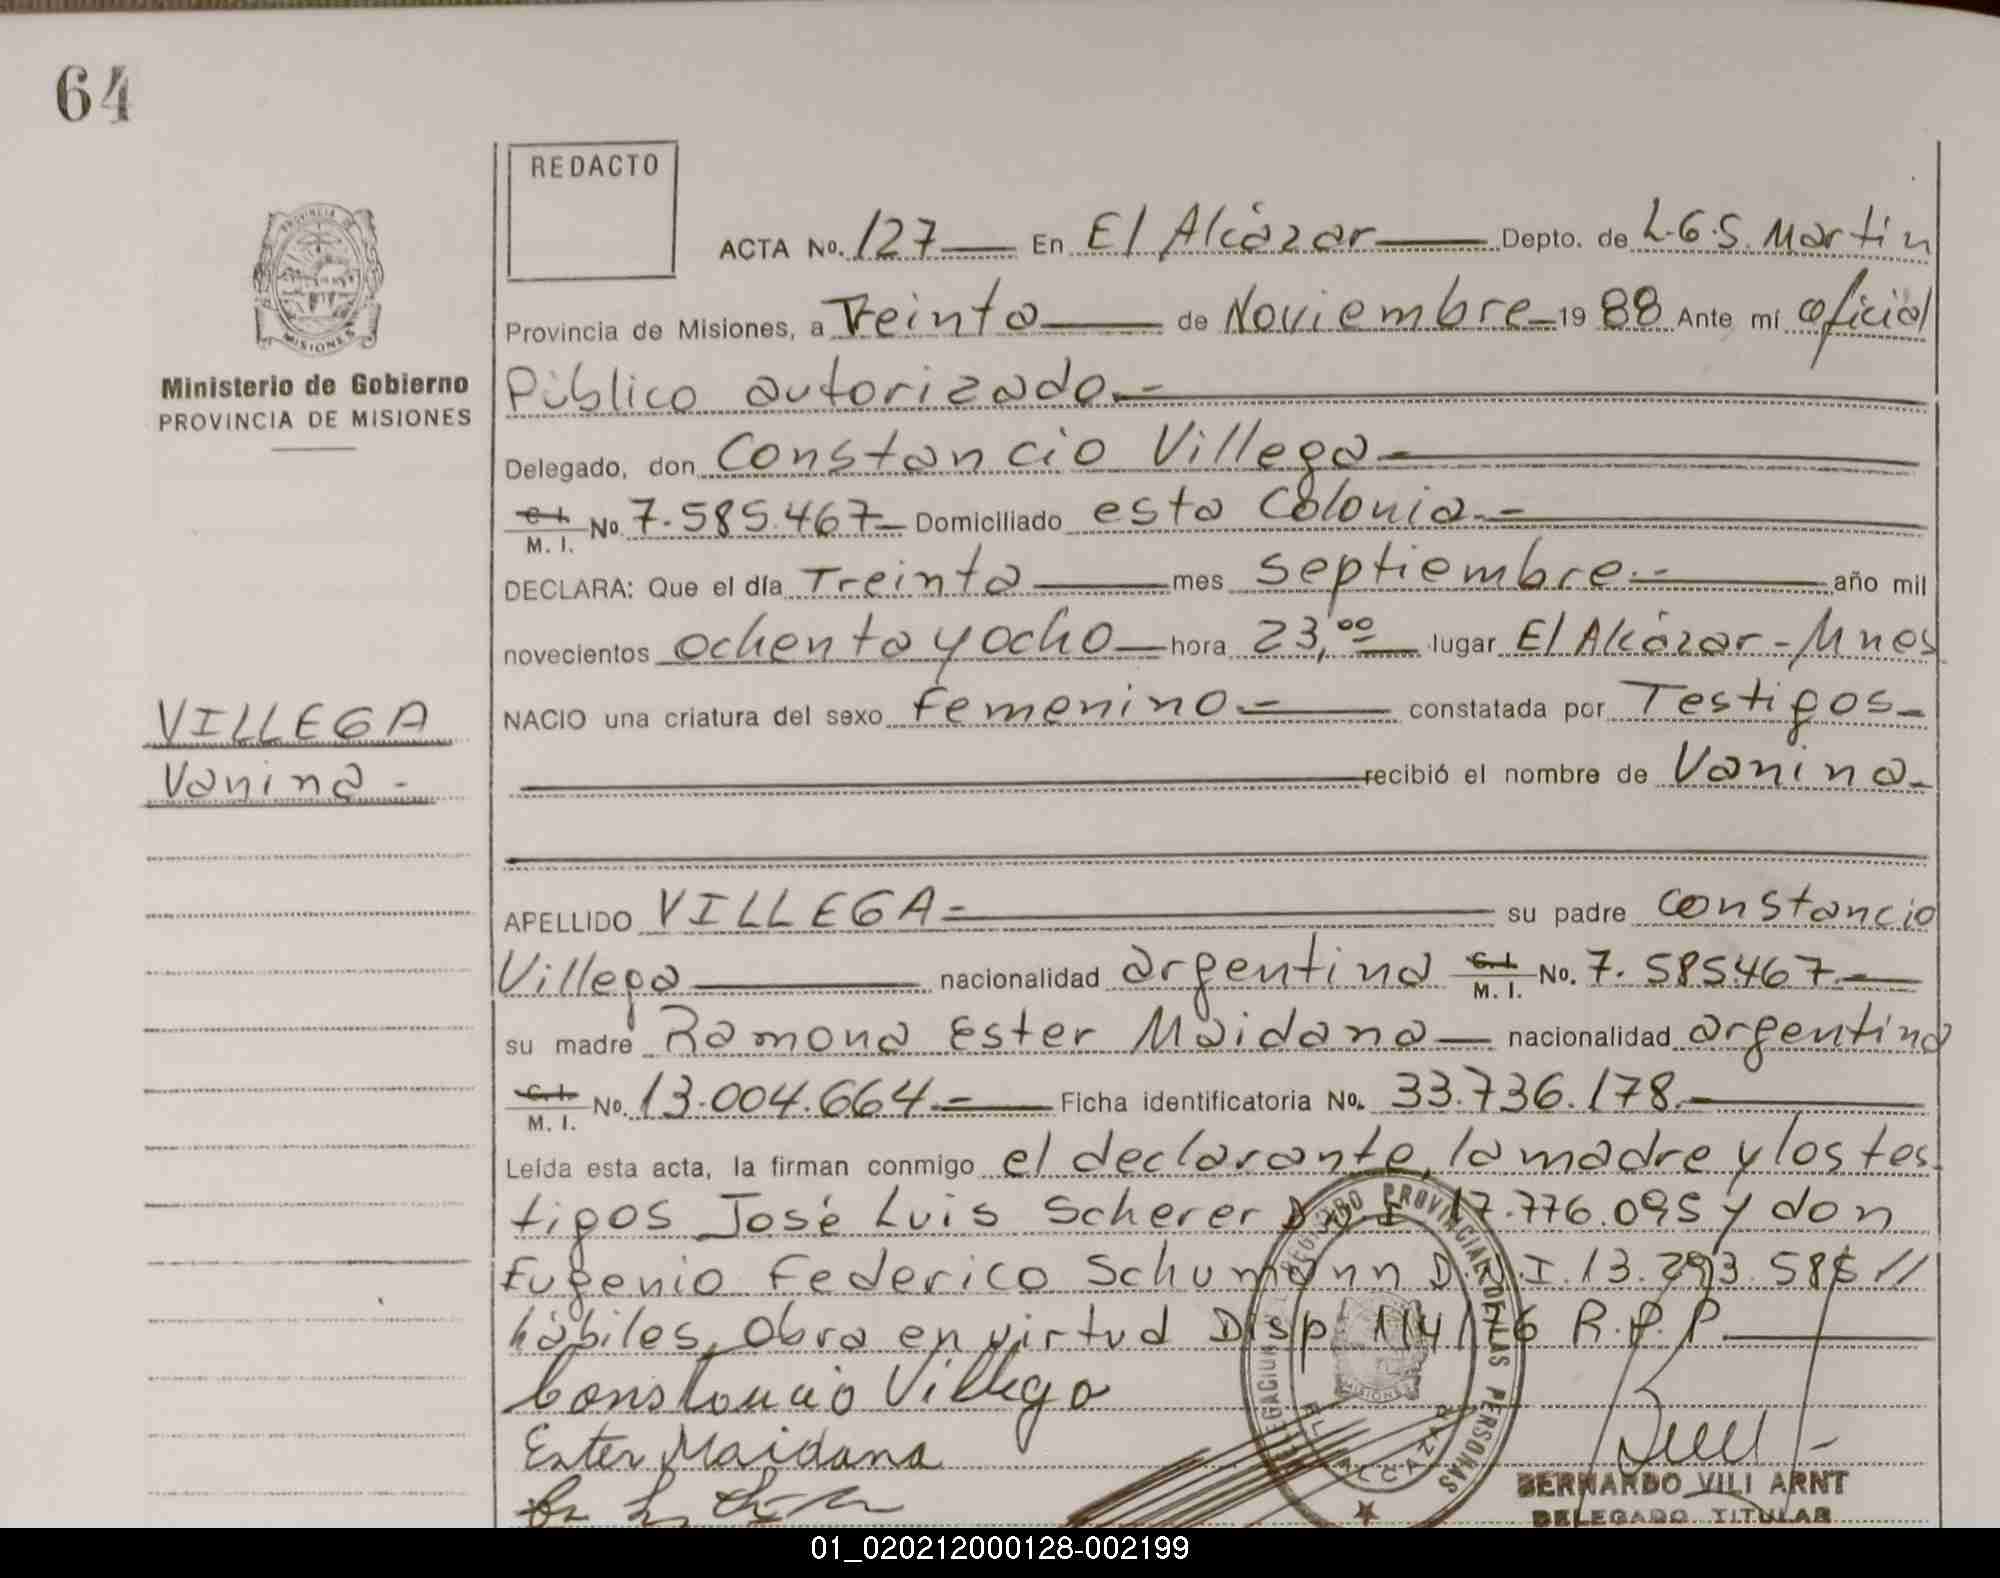 64
REDACTO
ACTA No. 127 En El Alcázar Depto. de L.G.S. Martin
Provincia de Misiones, a Treinta de Noviembre 1988 Ante mí oficial
Ministerio de Gobierno
PROVINCIA DE MISIONES
Público autorizado.-
Delegado, don Constancio Villega
C.I. M. I. No. 7.585.467 Domiciliado esta Colonia.-
DECLARA: Que el día Treinta mes septiembre.- año mil
novecientos ochenta y ocho hora 23,00 lugar El Alcázar - Mnes
VILLEGA
Vanina -
NACIO una criatura del sexo femenino.- constatada por Testigos-
recibió el nombre de Vanina-
APELLIDO VILLEGA- su padre Constancio
Villega nacionalidad argentina C.I. M. I. No. 7.585.467.-
su madre Ramona Ester Maidana nacionalidad argentina
C.I. M. I. No. 13.004.664.- Ficha identificatoria No. 33.736.178.-
Leída esta acta, la firman conmigo el declarante, la madre y los tes
tigos José Luis Scherer D.N.I 17.776.095 y don
Eugenio Federico Schumann D.N.I. 13.293.585 //
hábiles, Obra en virtud Disp 114/76 R.P.P.
Constancio Villega
Ester Maidana
DELEGACION REGISTRO PROVINCIAL DE LAS PERSONAS
MISIONES
EL ALCAZAR
BERNARDO VILI ARNT
DELEGADO TITULAR
01_020212000128-002199